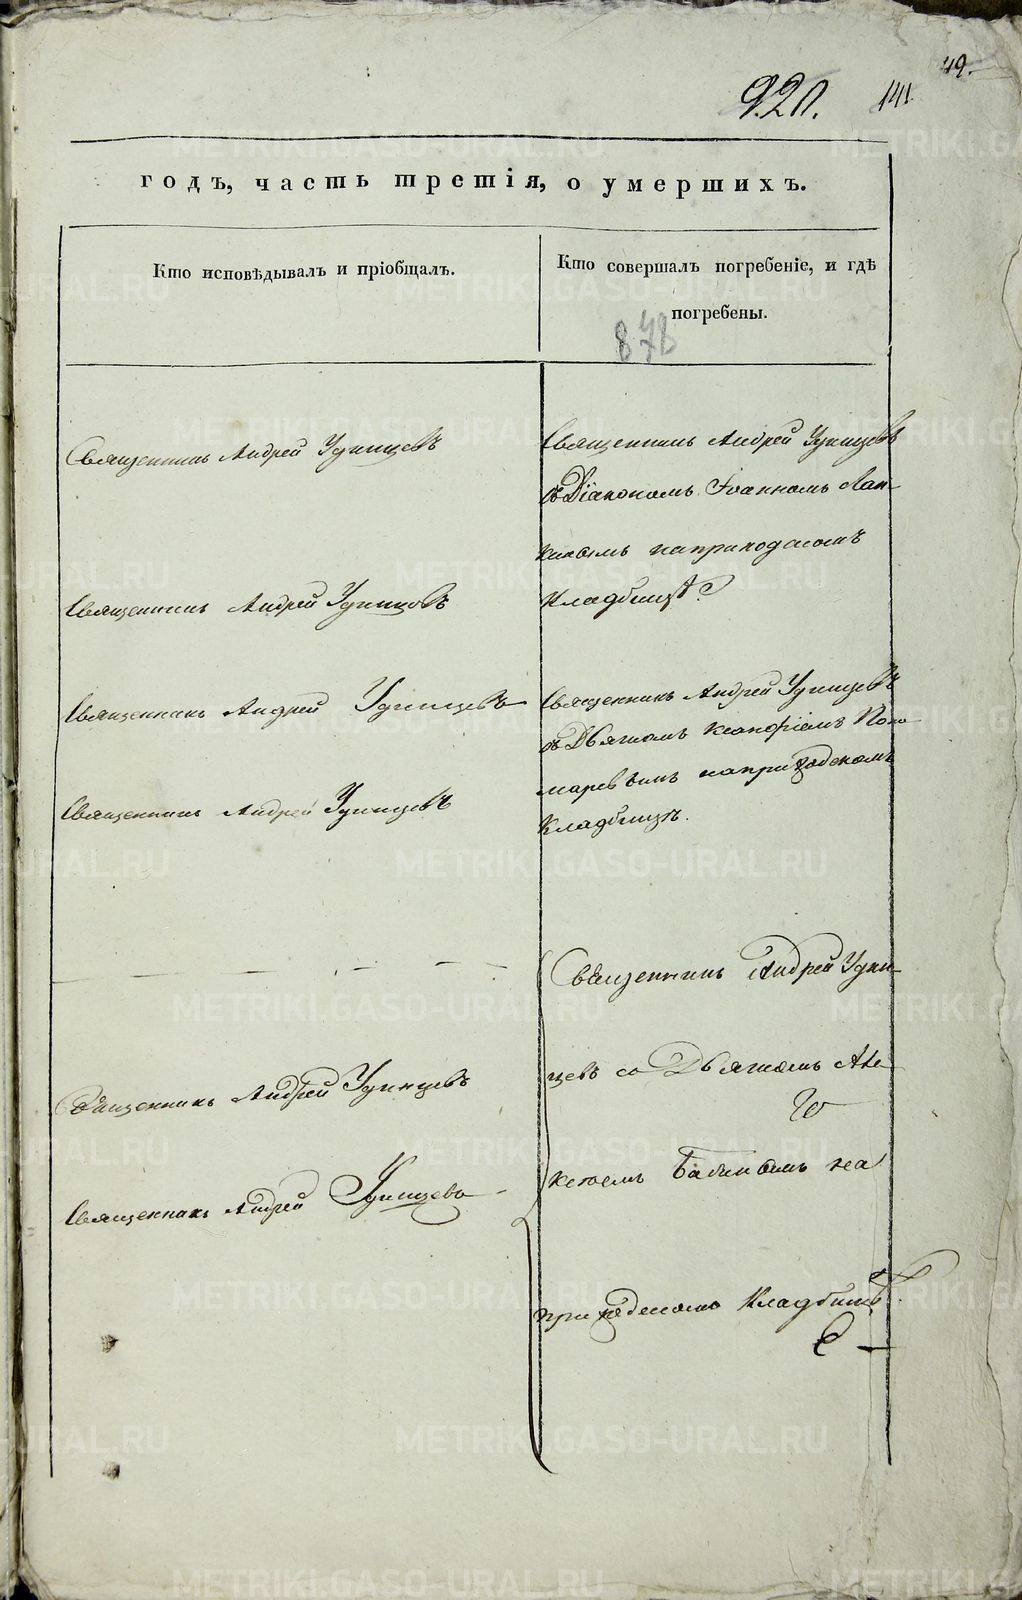 49.
141.
92л.
годъ, часть третія, о умершихъ.
Кто исповѣдывалъ и пріобщалъ.
Кто совершалъ погребеніе, и гдѣ
погребены.
878
Священникъ Андрей Удинцевъ
Священникъ Андрей Удинцевъ
съ Діакономъ Іоанномъ Лап-
киномъ на приходскомъ
Кладбищѣ.
Священникъ Андрей Удинцовъ
Священникъ Андрей Удинцевъ
Священникъ Андрей Удинцевъ
съ Дьячкомъ Ксанофіомъ Поно-
маревымъ на приходскомъ
Кладбищѣ.
Священникъ Андрей Удинцевъ
Священникъ Андрей Удин-
цевъ со Дьячкомъ Але-
ксѣемъ Бабинымъ на
приходскомъ Кладбищѣ.
Священникъ Андрей Удинцевъ
Священникъ Андрей Удинцевъ
METRIKI.GASO-URAL.RU